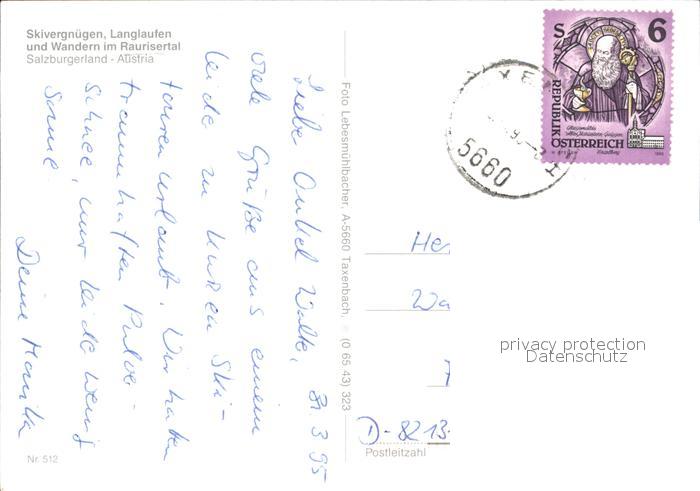 Skivergnügen, Langlaufen
und Wandern im Raurisertal
Salzburgerland - Austria
Liebe Onkel Walter, 31.3.95
viele Grüße aus einem
leider zu kurzen Ski-
tourenurlaub. Wir hatten
traumhaften Pulver-
schnee, nur leider wenig
Sonne.
Deine Monika
Nr. 512
Foto Lebesmühlbacher, A-5660 Taxenbach, (0 65 43) 323
S 6
REPUBLIK
ÖSTERREICH
5660
He
Wa
T
D-8213
Postleitzahl
privacy protection
Datenschutz